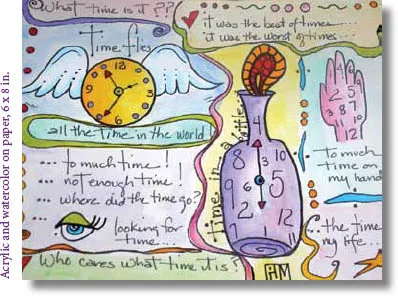 What time is it??
it was the best of times....
it was the worst of times...
time flies
12
3
6
9
all the time in the world
... to much time!
... not enough time!
... where did the time go?
looking for
time...
Who cares what time it is?
time in a bottle
4
3
10
8
1
5
9
6
5
2
11
12
HM
2
5
3
8
7
11
10
12
to much
time on
my hand
...the time
my life...
Acrylic and watercolor on paper, 6 x 8 in.